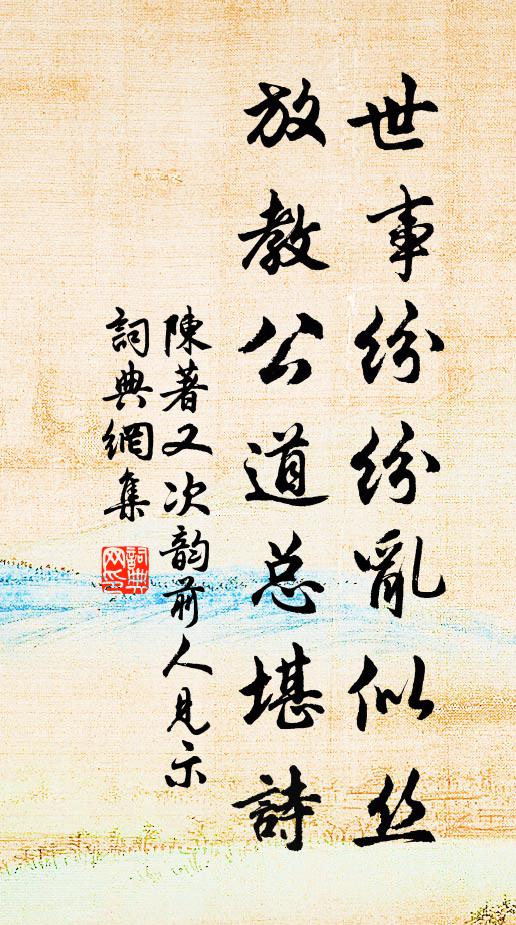 世事紛紛亂似丝
放教公道总堪詩
陳著又次韵前人見示
詞典網集